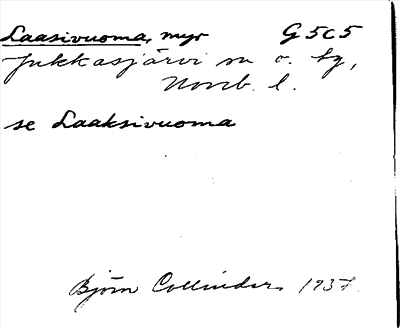 Laasivuoma, myr G5C5
Jukkasjärvi sn o. tg,
Norrb. l.
se Laaksivuoma
Björn Collinder 1937.